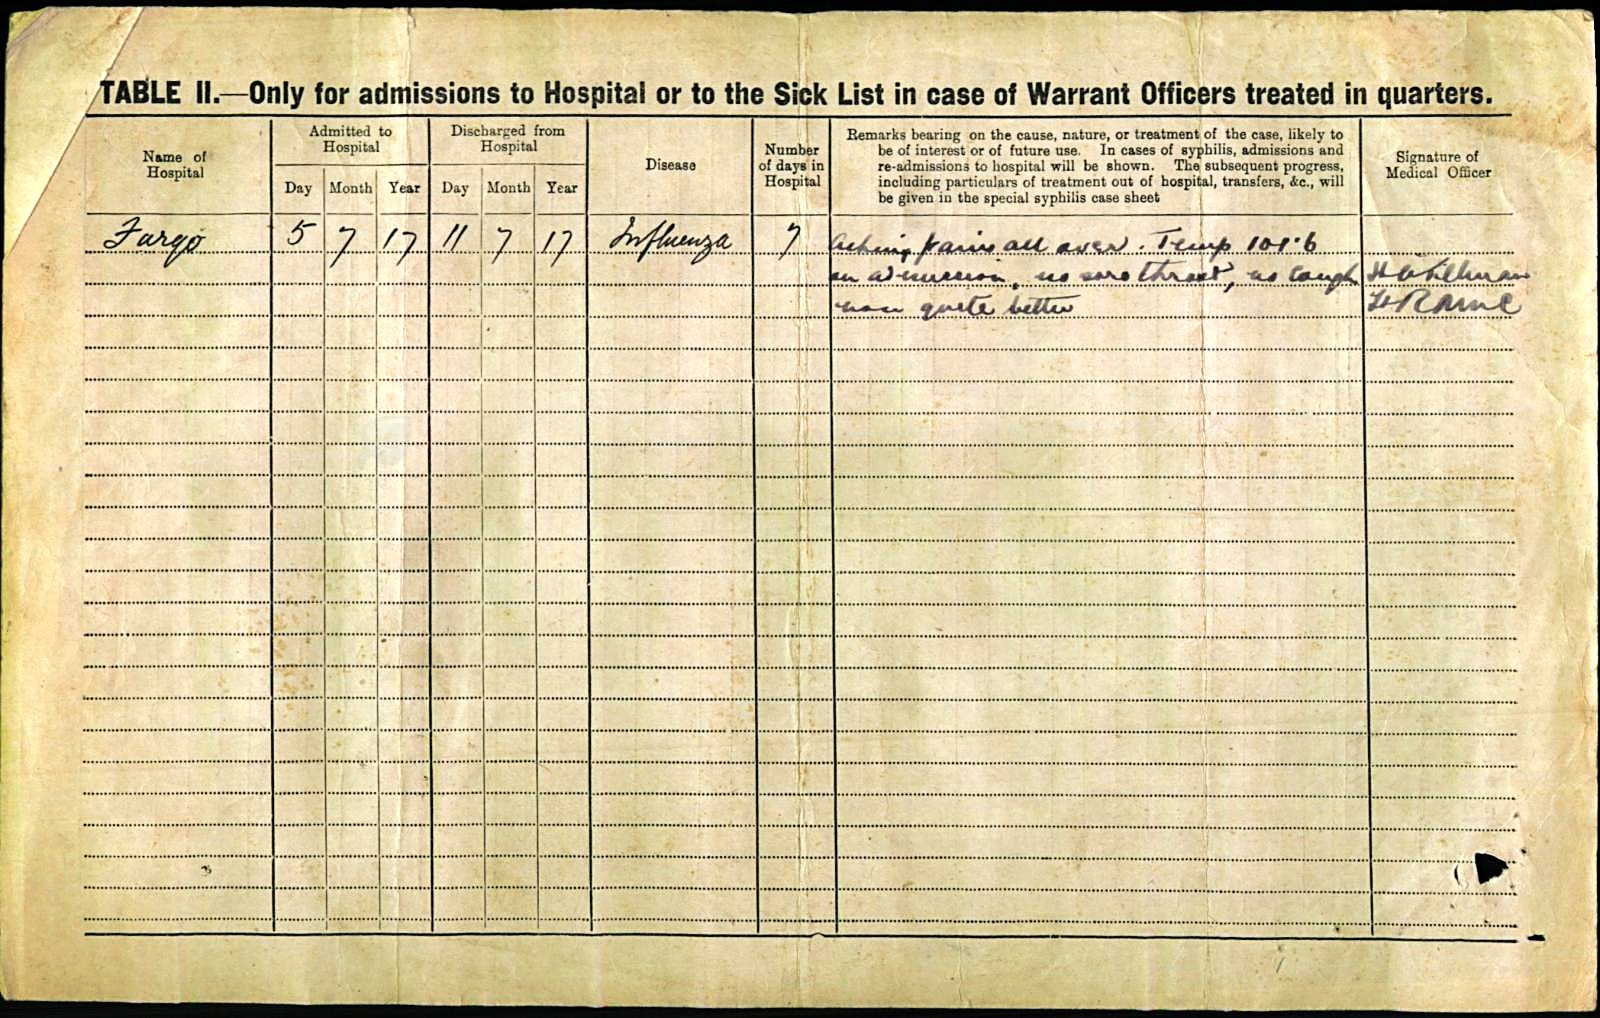 TABLE II.—Only for admissions to Hospital or to the Sick List in case of Warrant Officers treated in quarters.
Name of Hospital
Admitted to Hospital
Day Month Year
Discharged from Hospital
Day Month Year
Disease
Number of days in Hospital
Remarks bearing on the cause, nature, or treatment of the case, likely to
be of interest or of future use. In cases of syphilis, admissions and
re-admissions to hospital will be shown. The subsequent progress,
including particulars of treatment out of hospital, transfers, &c., will
be given in the special syphilis case sheet
Signature of Medical Officer
Fargo 5 7 17 11 7 17 Influenza 7 Aching pains all over. Temp 101.6
on admission, no sore throat, no cough
now quite better
Lt RAMC